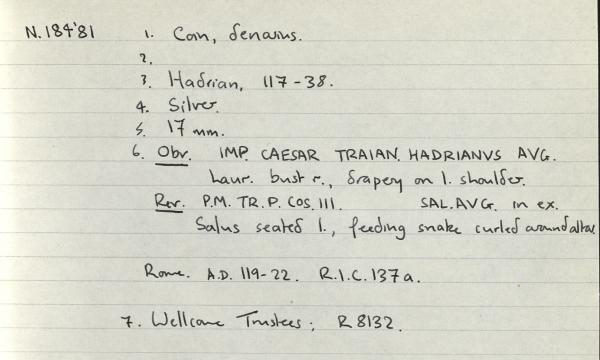 N.184'81 1. Coin, denarius.
2.
3. Hadrian, 117-38.
4. Silver.
5. 17 mm.
6. Obv. IMP. CAESAR TRAIAN. HADRIANVS AVG.
Laur. bust r., drapery on l. shoulder.
Rev. P.M. TR. P. COS. III. SAL. AVG. in ex.
Salus seated l., feeding snake curled around altar
Rome. A.D. 119-22. R.I.C. 137a.
7. Wellcome Trustees; R 8132.